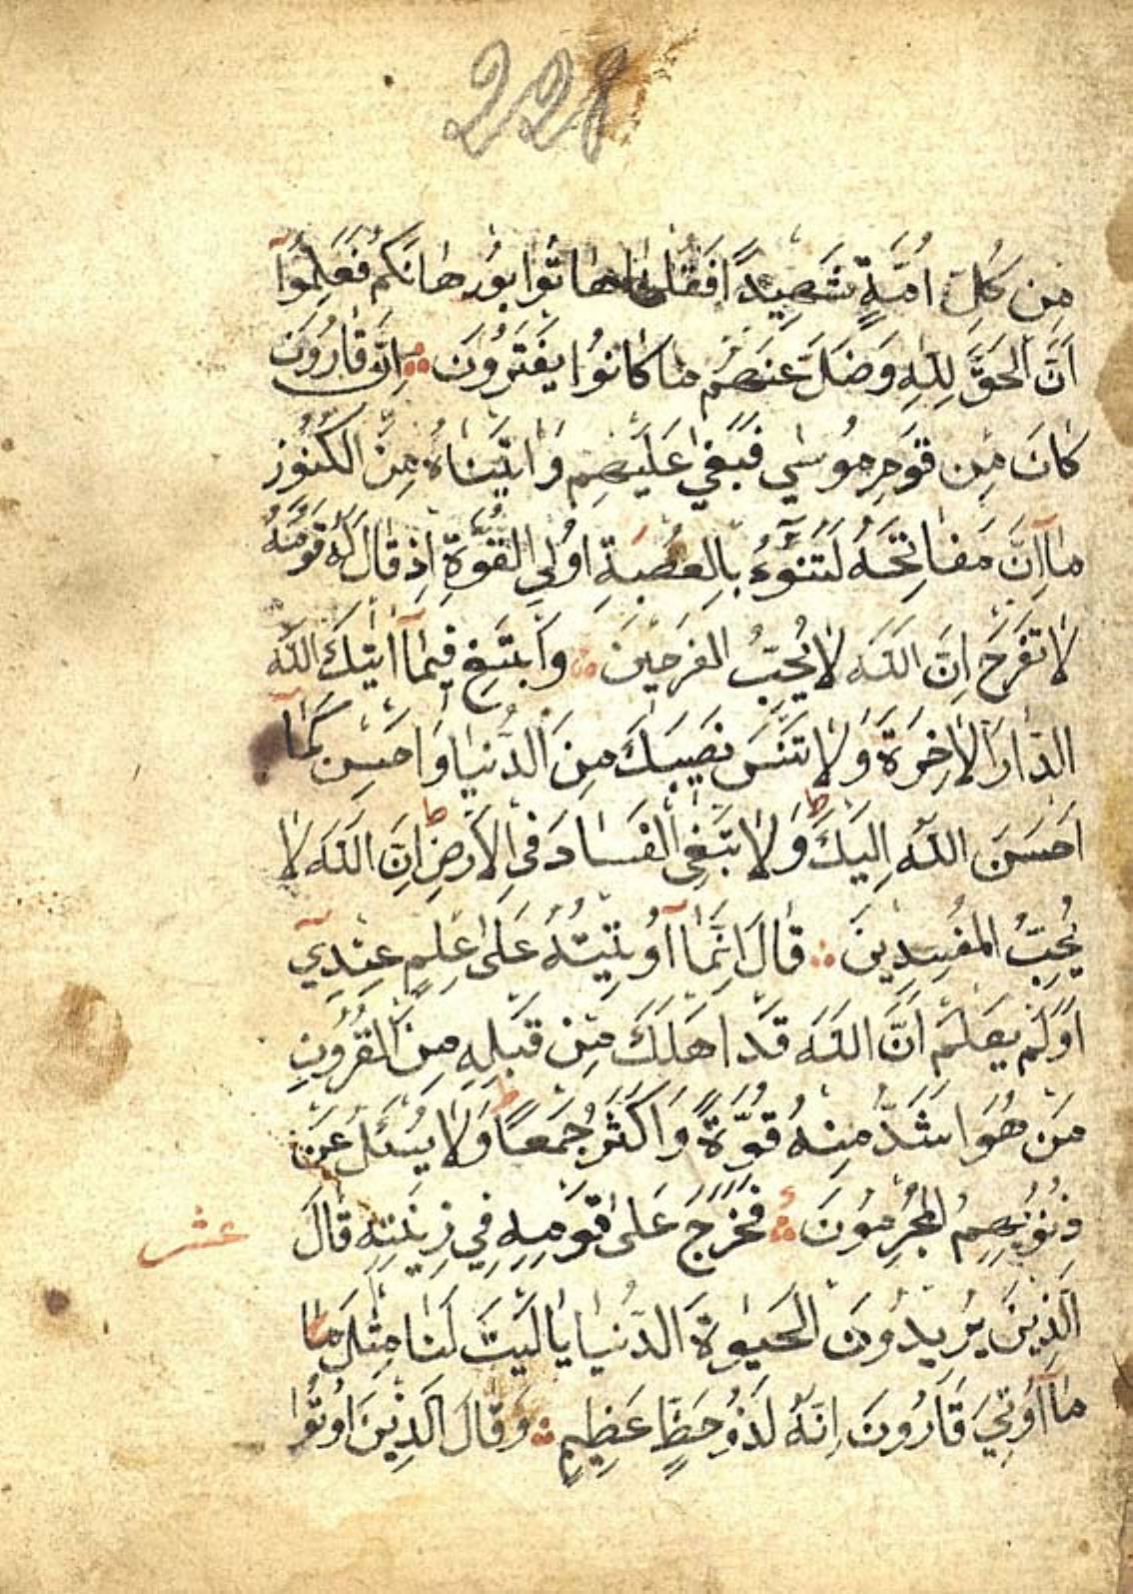 228
مِن كُلِّ اُمَّةٍ شَهِيدًا فَقُلْنَا هَاتُوا بُورهَانَكُم فَعَلِمُوٓا
اَنَّ الحَقَّ لِلهِ وَضَلَّ عَنهُم مَا كَانُوا يَفتَرُونَ ۞ اِنَّ قَارُونَ
كَانَ مِن قَومِ مُوسٰي فَبَغٰي عَلَيهِم وَاتَينَاهُ مِنَ الكُنُوزِ
مَآ اِنَّ مَفَاتِحَهُ لَتَنُوٓءُ بِالعُصبَةِ اُولِي القُوَّةِ اِذ قَالَ لَهُ قَومُهُ
لَا تَفرَح اِنَّ اللّٰهَ لَا يُحِبُّ الفَرِحِينَ ۞ وَابتَغِ فِيمَآ اتٰيكَ اللّٰهُ
الدَّارَ الاٰخِرَةَ وَلَا تَنسَ نَصِيبَكَ مِنَ الدُّنيَا وَاَحسِن كَمَآ
اَحسَنَ اللّٰهُ اِلَيكَ ط وَلَا تَبغِي الفَسَادَ فِي الاَرضِ ط اِنَّ اللّٰهَ لَا
يُحِبُّ المُفسِدِينَ ۞ قَالَ اِنَّمَآ اُوتِيتُهُ عَلٰى عِلمٍ عِندِيٓ
اَوَلَم يَعلَم اَنَّ اللّٰهَ قَد اَهلَكَ مِن قَبلِهِ مِنَ القُرُونِ
مَن هُوَ اَشَدُّ مِنهُ قُوَّةً وَاَكثَرُ جَمعًا ط وَلَا يُسئَلُ عَن
ذُنُوبِهِمُ المُجرِمُونَ ۞ فَخَرَجَ عَلٰى قَومِهِ فِي زِينَتِهِ قَالَ
عشر
الَّذِينَ يُرِيدُونَ الحَيٰوةَ الدُّنيَا يَا لَيتَ لَنَا مِثلَ مَا
مَآ اُوتِيَ قَارُونَ اِنَّهُ لَذُو حَظٍّ عَظِيمٍ ۞ وَقَالَ الَّذِينَ اُوتُوا